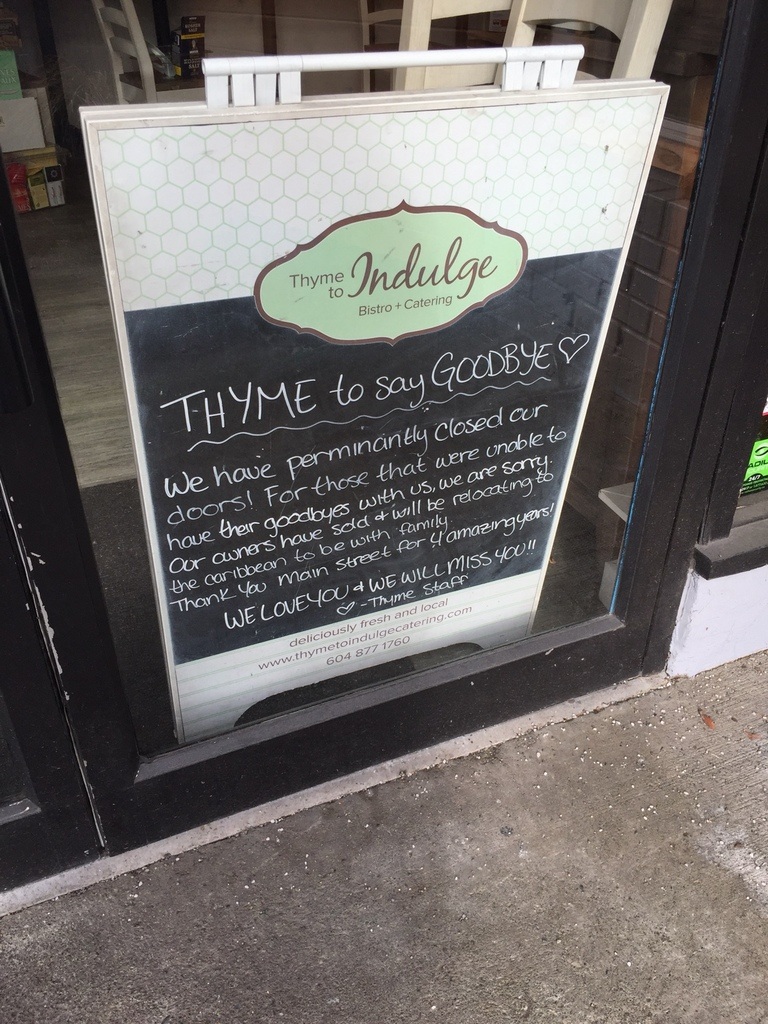 Thyme to Indulge
Bistro + Catering
THYME to say GOODBYE ♡
We have perminantly closed our
doors! For those that were unable to
have their goodbyes with us, we are sorry.
Our owners have sold & will be relocating to
the caribbean to be with family.
Thank you Main Street for 4 amazing years!
WE LOVE YOU & WE WILL MISS YOU!!
♡ -Thyme Staff
deliciously fresh and local
www.thymetoindulgecatering.com
604 877 1760
KOSHER
SALT